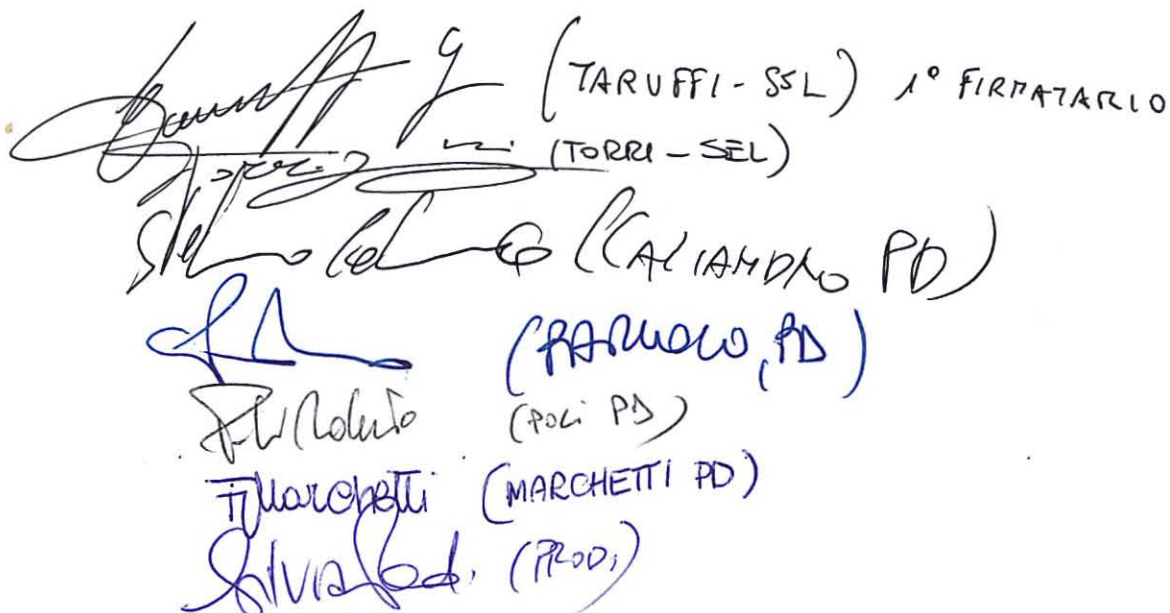 (TARUFFI - SSL) 1° FIRMATARIO
(TORRI - SEL)
Stefano Cal (CALIANDRO PD)
(PARUOLO, PD)
Poli Roberto (POLI PD)
F Marchetti (MARCHETTI PD)
Silvia Prodi (PRODI)